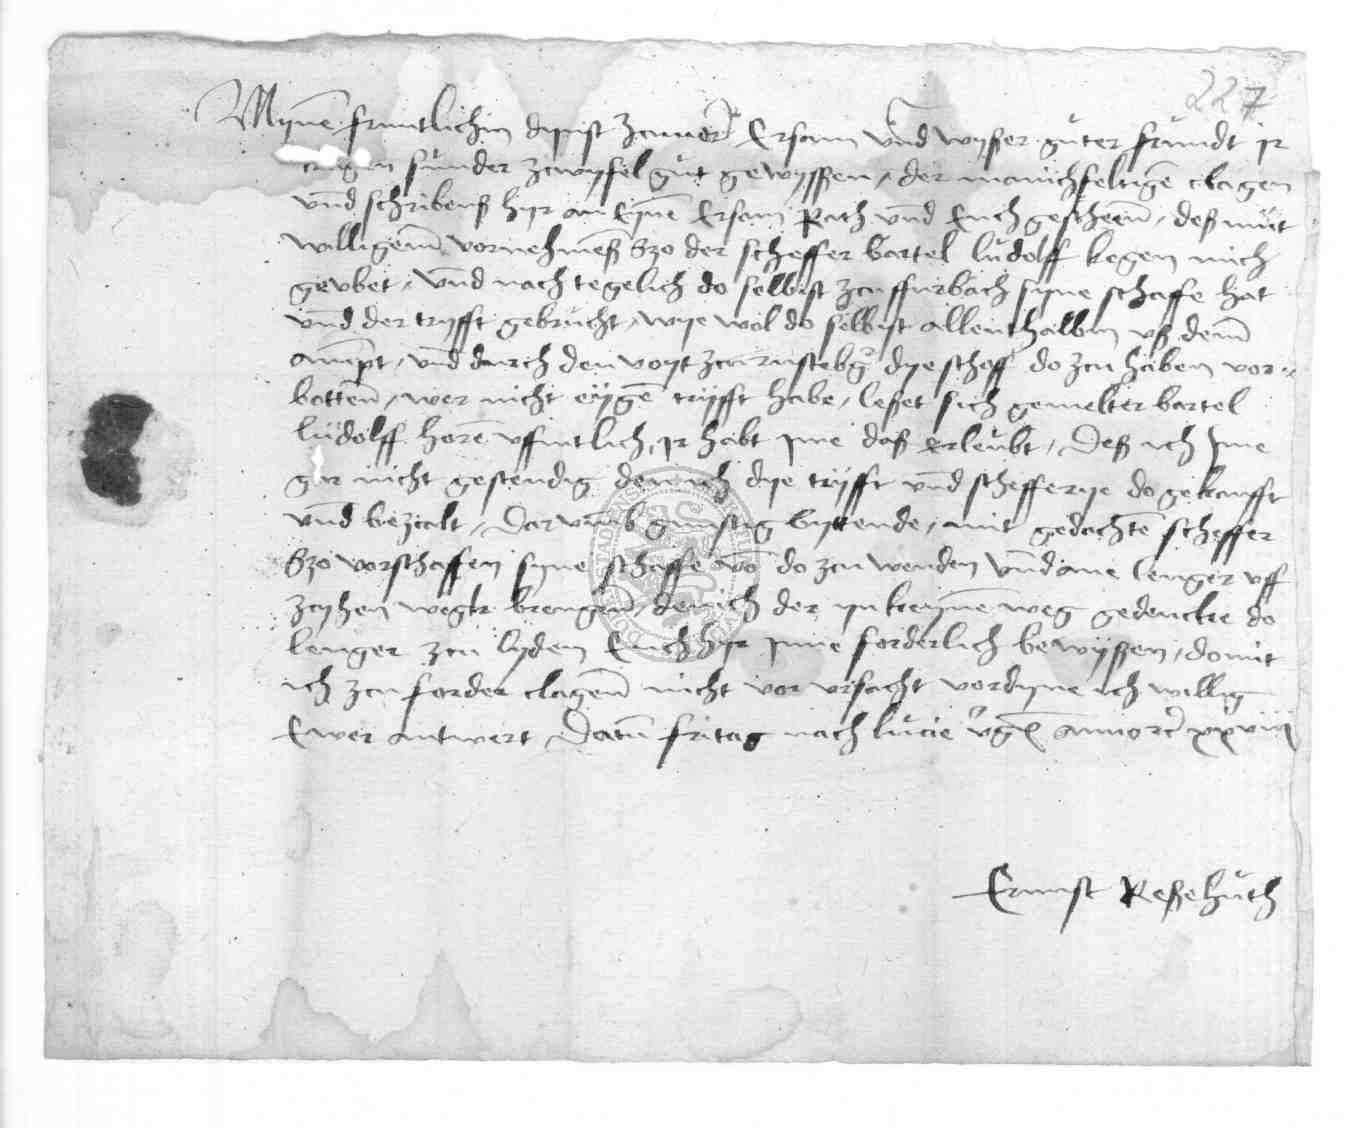 227
Mynen fruntlichin dynst zcuuor Ersam vnd wyßer guter frundt ir
tragen sunder zwyfel gut gewyssen, der manichfeltigen clagen
vnd schribens hyr an Eynen Ersam Rath vnd Euch gescheen, deß mut
willigenn vornehmenß ßzo der scheffer bartel ludolff kegen mich
geubet, vnd nach tegelich do selbist zcu ffurbach syne schaffe hat
vnd der tryfft gebrucht, wye wol do selbist allenthalbin vß dem
ampt, vnd durch den voyt zcu rustebg dye schoff do zcu haben vor
botten, wer nicht eygen tryfft habe, leßet sich gemelter bartel
ludolff horen uffintlich, ir habt ime daß erleubt, deß ich ime
gar nicht gestendig den ich dye tryfft vnd schefferye do gekaufft
vnd bezcalt, Dar vmb gunstig byttende, mit gedachten scheffer
ßzo vorschaffen syne schaffe do zcu wenden vnd ane lenger uff
zcyhen wegk brengen, den ich der yn keynen weg gedencke do
lenger zcu lyden Euch hyr inne forderlich bewyßen, domit
ich zcu forder clagen nicht vor vrsacht vordyne ich willig
Ewer antwert Datum fritag nach lucie vgis anno xxviii
Ernnst Reßehuth